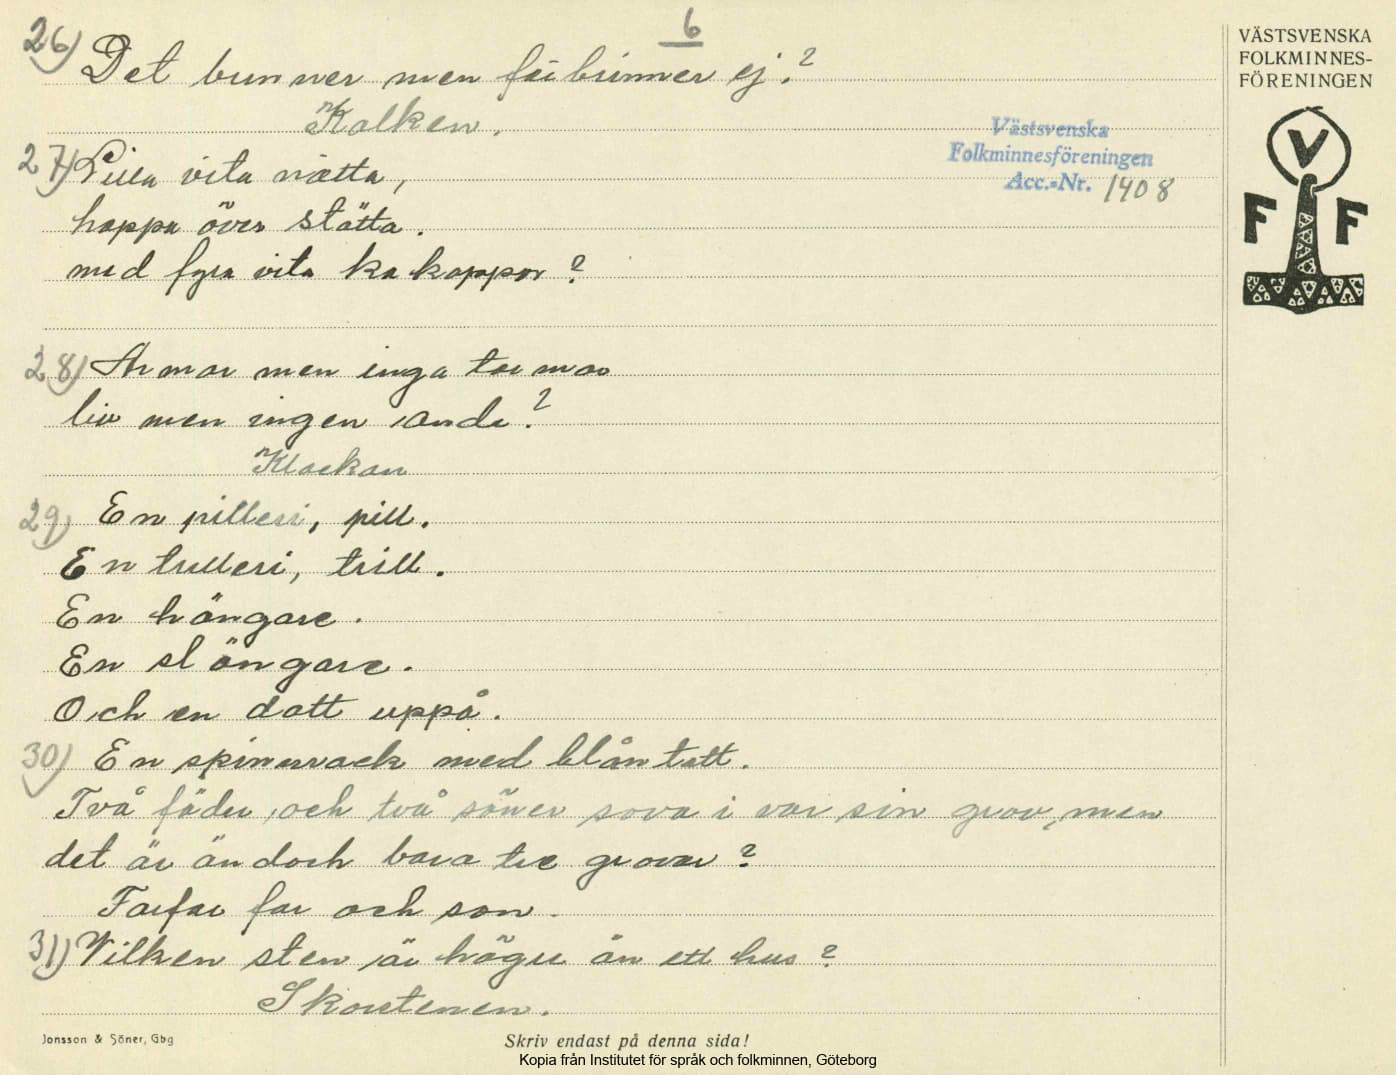 6
26) Det brinner men förbrinner ej?
Kalken.
27) Lilla vita nätta,
hoppa över stätta.
med fyra vita kakoppor?
28) Armar men inga tarmar
liv men ingen ande?
Klockan
29) En pilleri, pill.
En trilleri, trill.
En hängare.
En slängare.
Och en datt uppå.
30) En spinnrock med blåntatt.
Två fäder och två söner sova i var sin grav, men
det är ändock bara tre gravar?
Farfar far och son.
31) Vilken sten är högre än ett hus?
Skorstenen.
Västsvenska
Folkminnesföreningen
Acc.-Nr. 1408
VÄSTSVENSKA
FOLKMINNES-
FÖRENINGEN
V
F F
Jonsson & Söner, Gbg
Skriv endast på denna sida!
Kopia från Institutet för språk och folkminnen, Göteborg